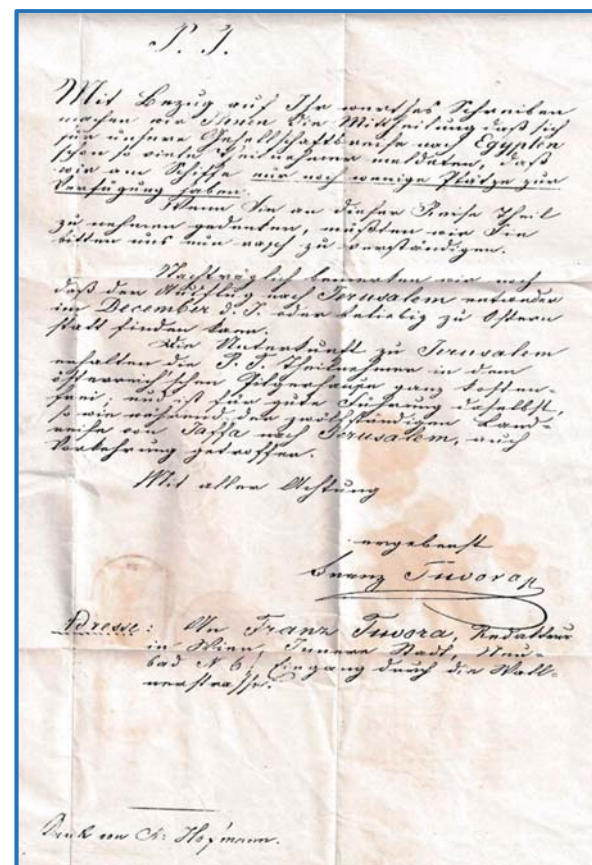 P. T.
Mit Bezug auf Ihr werthes Schreiben
machen wir Ihnen die Mittheilung daß sich
für unsere Gesellschaftsreise nach Egypten
schon so viele Theilnehmer meldeten, daß
wir am Schiffe nur noch wenige Plätze zur
Verfügung haben.
Wenn Sie an dieser Reise Theil
zu nehmen gedenken, müßten wir Sie
bitten uns nun rasch zu verständigen.
Nachträglich bemerken wir noch
daß der Ausflug nach Jerusalem entweder
im December d. J. oder beliebig zu Ostern
statt finden kann.
Die Unterkunft zu Jerusalem
erhalten die P. T. Theilnehmer in dem
österreich'schen Pilgerhause ganz kosten-
frei; und ist für gute Führung daselbst,
so wie während der zwölfstündigen Land-
reise von Jaffa nach Jerusalem, auch
Vorkehrung getroffen.
Mit aller Achtung
ergebenst
Franz Tuvora
Adresse: An Franz Tuvora, Redakteur
in Wien, Innere Stadt, Neu-
bad N 6, Eingang durch die Wall-
nerstrasse.
Druck von Ch: Hofmann.